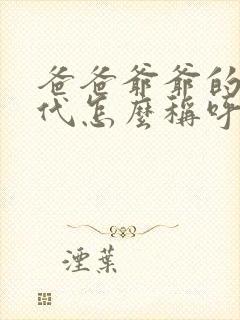 爸爸爷爷的
代怎麼稱呼
湮葉